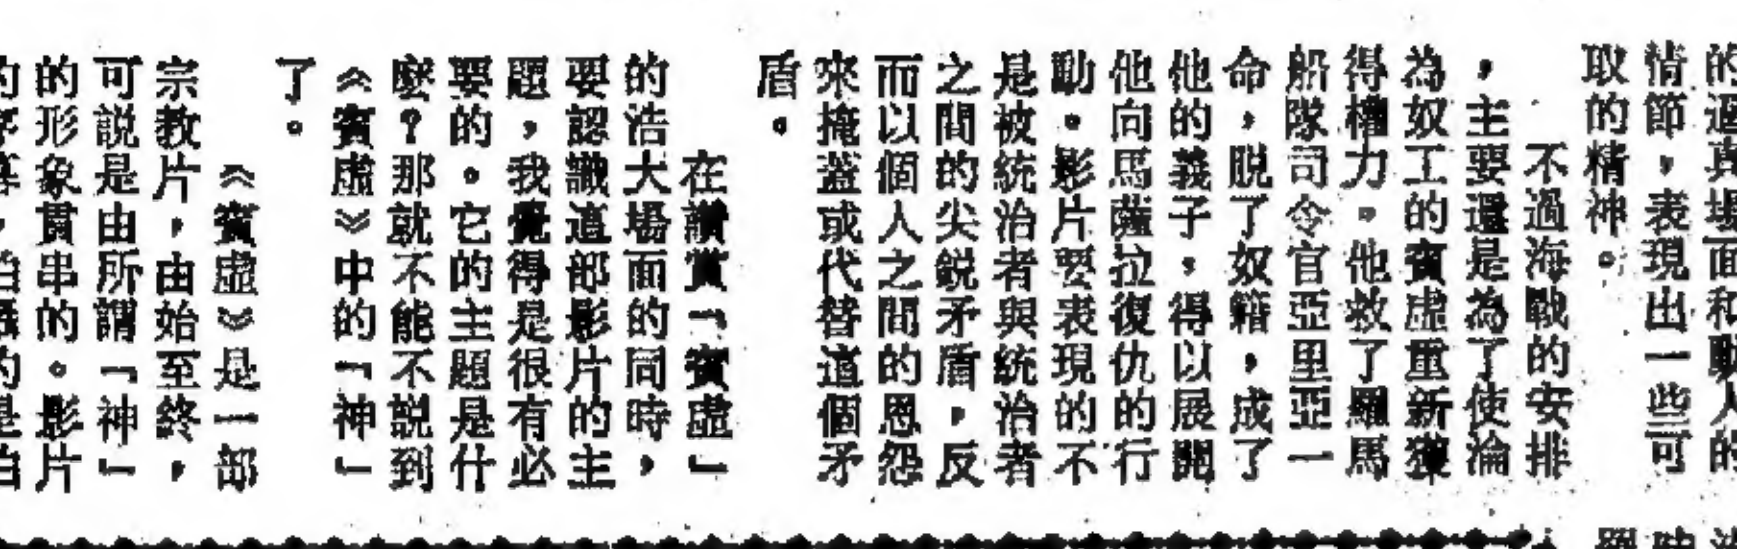 的逼真場面和動人的
情節，表現出一些可
取的精神。
不過海戰的安排
，主要還是為了使淪
為奴工的賓虛重新獲
得權力。他救了羅馬
船隊司令官亞里亞一
命，脱了奴籍，成了
他的義子，得以展開
他向馬薩拉復仇的行
動。影片要表現的不
是被統治者與統治者
之間的尖鋭矛盾，反
而以個人之間的恩怨
來掩蓋或代替這個矛
盾。
在讚賞「賓虛」
的浩大場面的同時，
要認識這部影片的主
題，我覺得是很有必
要的。它的主題是什
麼？那就不能不説到
《賓虛》中的「神」
了。
《賓虛》是一部
宗教片，由始至終，
可説是由所謂「神」
的形象貫串的。影片